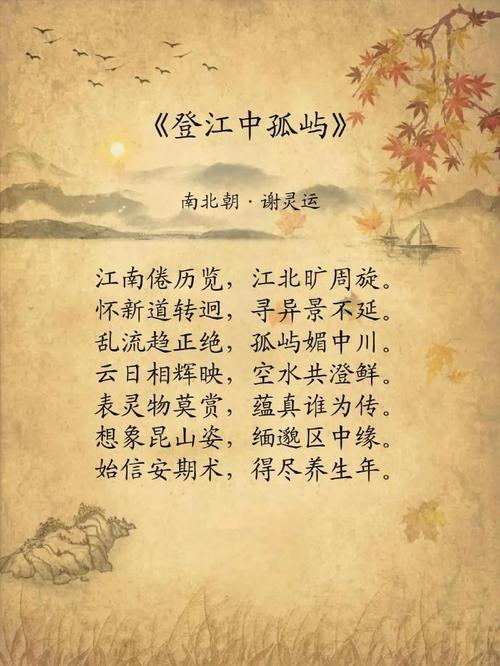 《登江中孤屿》
南北朝·谢灵运
江南倦历览，江北旷周旋。
怀新道转迥，寻异景不延。
乱流趋正绝，孤屿媚中川。
云日相辉映，空水共澄鲜。
表灵物莫赏，蕴真谁为传。
想象昆山姿，缅邈区中缘。
始信安期术，得尽养生年。